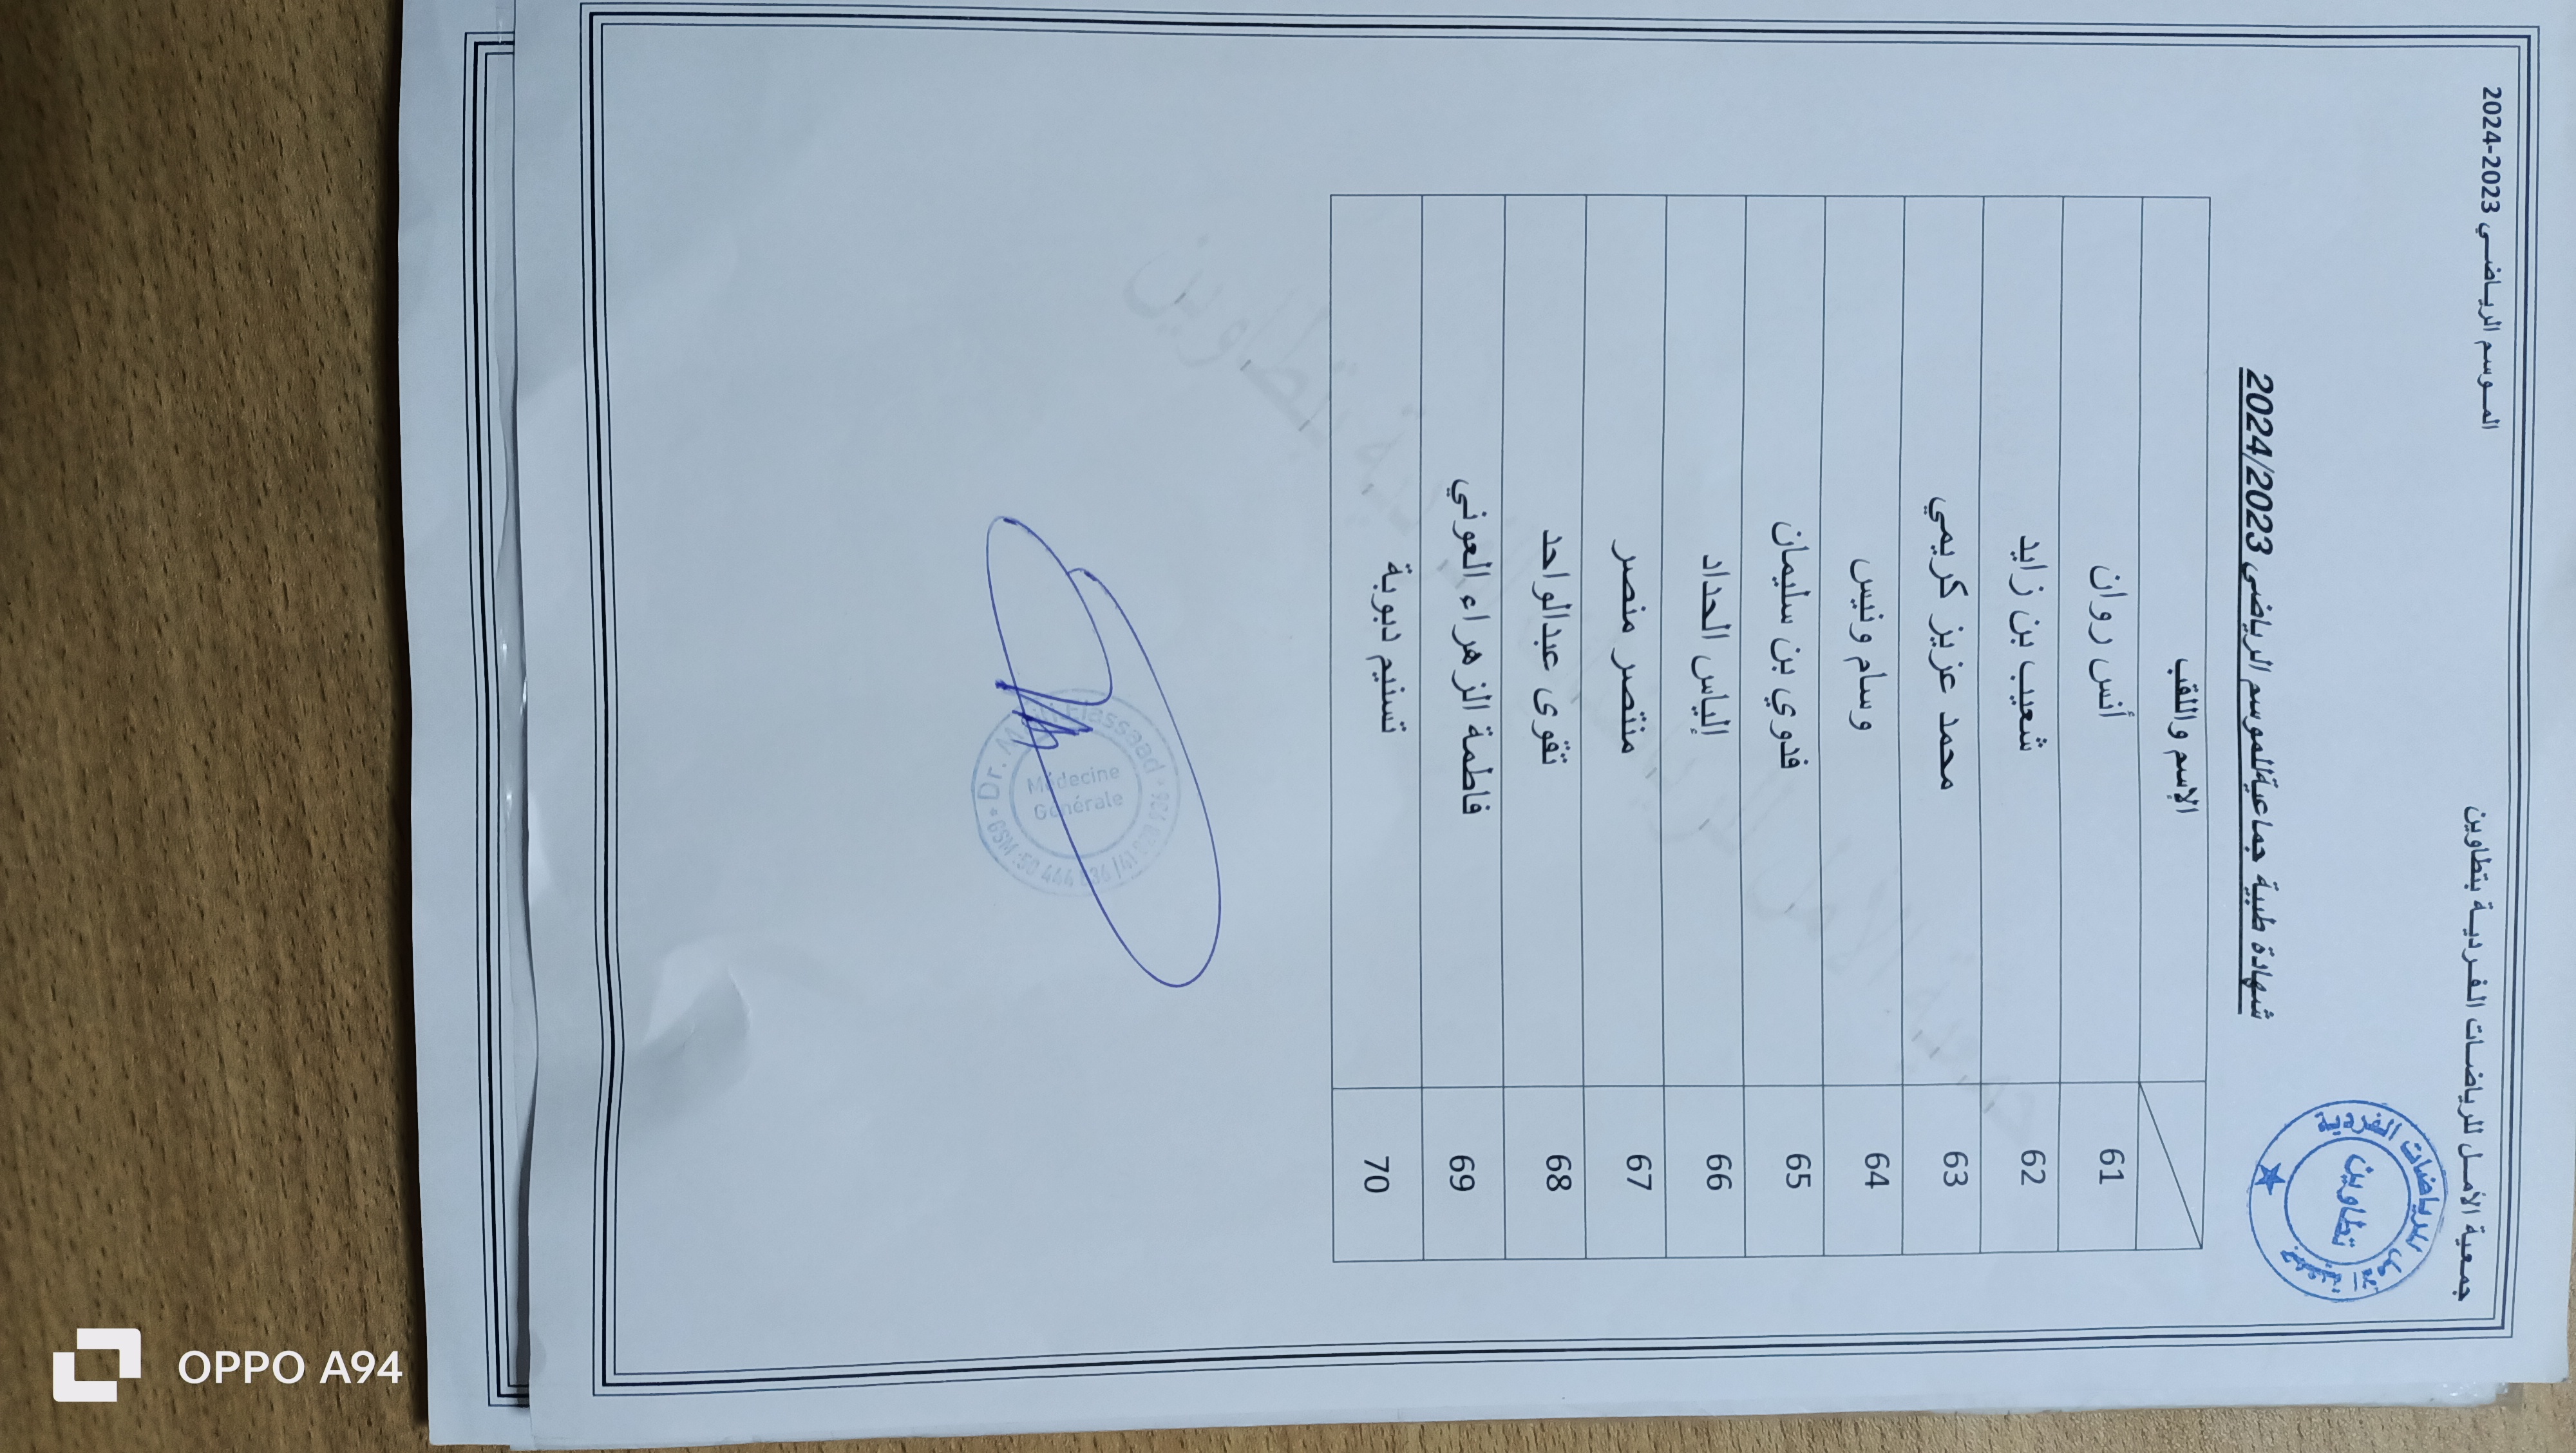 جمعية الأمل للرياضات الفردية بتطاوين
الموسم الرياضي 2023-2024
تطاوين
للرياضات الفردية
شهادة طبية جماعية للموسم الرياضي 2024/2023
الإسم واللقب
61 أنس روان
62 شعيب بن زايد
63 محمد عزيز كريمي
64 وسام ونيس
65 فدوي بن سليمان
66 إلياس الحداد
67 منتصر منصر
68 تقوى عبدالواحد
69 فاطمة الزهراء العوني
70 تسنيم دبوبة
Dr. Elassaad
Médecine
Générale
GSM :50 444
OPPO A94